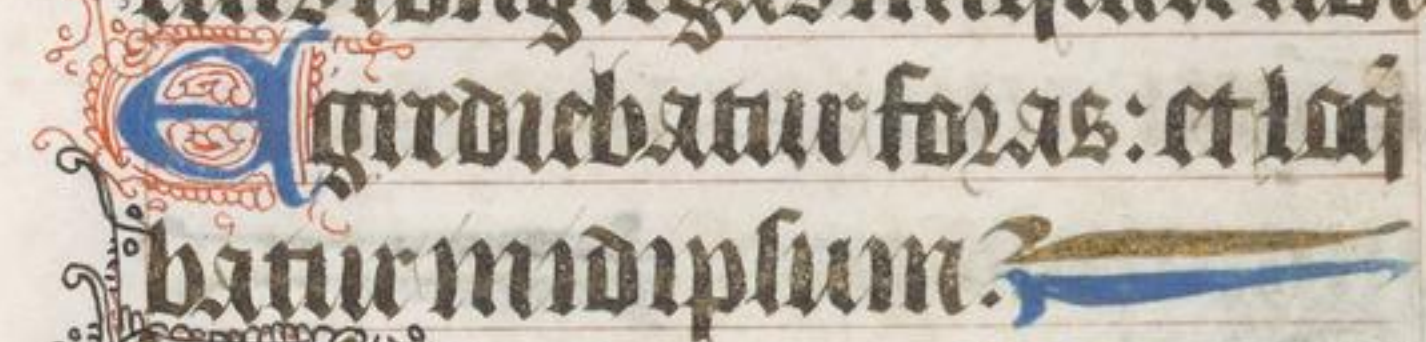 Egrediebatur foras: et loq̄
batur in idipsum.